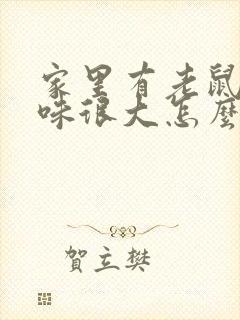 家里有老鼠
味很大怎麼
賀立樊